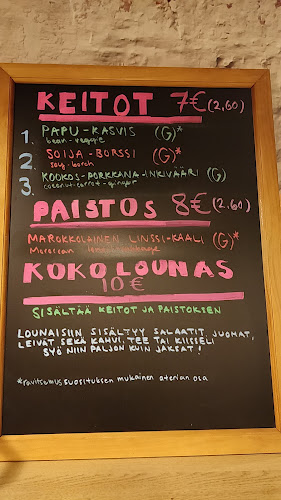 KEITOT 7€ (2,60)
1. PAPU-KASVIS (G)*
bean-veggie
2. SOIJA-BORSSI (G)*
soy-borsh
3. KOOKOS-PORKKANA-INKIVÄÄRI (G)
coconut-carrot-ginger
PAISTOS 8€ (2,60)
MAROKKOLAINEN LINSSI-KAALI (G)*
Moroccan
KOKO LOUNAS
10€
SISÄLTÄÄ KEITOT JA PAISTOKSEN
LOUNAISIIN SISÄLTYY SALAATIT, JUOMAT,
LEIVÄT SEKÄ KAHVI, TEE TAI KIISSELI
SYÖ NIIN PALJON KUIN JAKSAT!
*ravitsemussuosituksen mukainen aterian osa